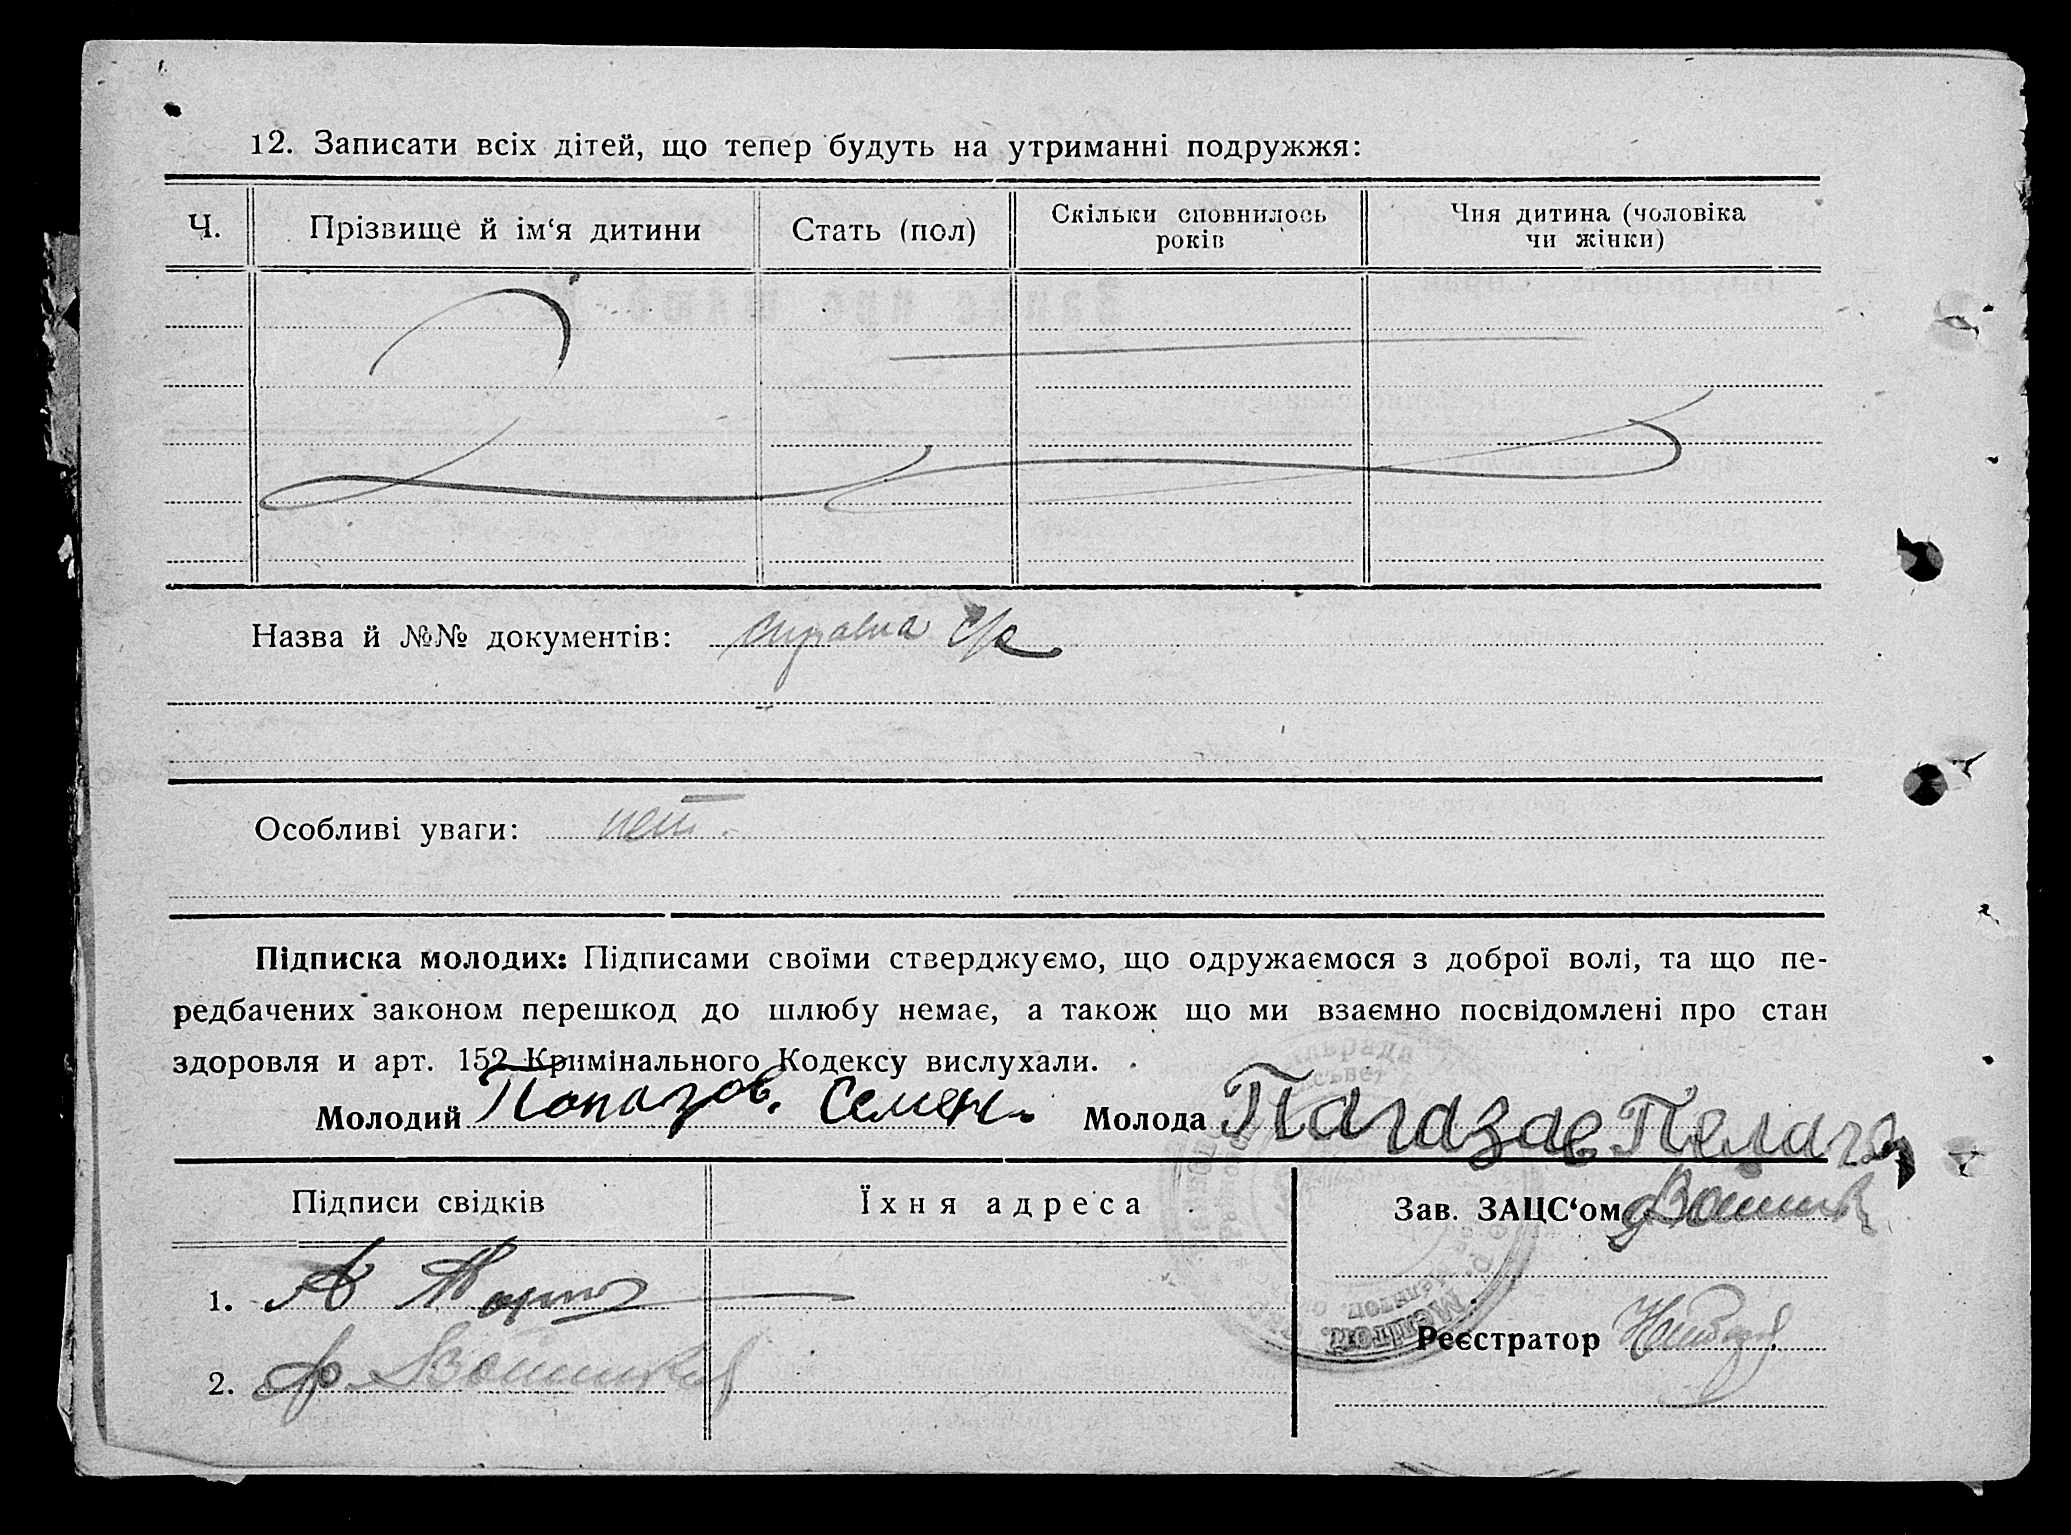 12. Записати всіх дітей, що тепер будуть на утриманні подружжя:
Ч. Прізвище й ім‘я дитини Стать (пол) Скільки сповнилось років Чия дитина (чоловіка чи жінки)
Назва й №№ документів: справка с/р
Особливі уваги: нет.
Підписка молодих: Підписами своїми стверджуємо, що одружаємося з доброї волі, та що пе-
редбачених законом перешкод до шлюбу немає, а також що ми взаємно посвідомлені про стан
здоровля и арт. 152 Кримінального Кодексу вислухали.
Молодий Попазов. Семен. Молода Пагазов Пелаге
Підписи свідків Їхня адреса Зав. ЗАЦС‘ом
1. А
Реєстратор
2.